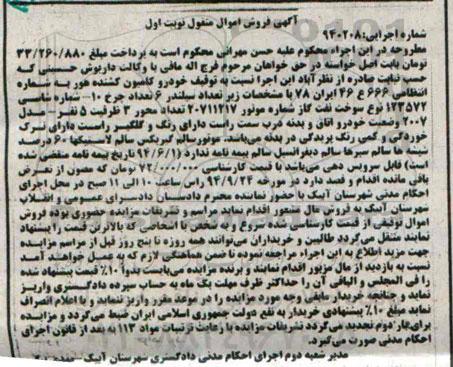 آگهی فروش اموال منقول نوبت اول
شماره اجرایی: ۹۴۰۲۰۸
مطروحه در این اجراء محکوم علیه حسن مهرانی محکوم است به پرداخت مبلغ ۳۳/۲۶۰/۸۸۰
تومان بابت اصل خواسته در حق خواهان مرحوم فرج اله مافی با وکالت داریوش حسینی که
حسب نیابت صادره از نظرآباد این اجرا نسبت به توقیف خودرو کامیون کشنده هور به شماره
انتظامی ۶۶۶ ع ۴۶ ایران ۷۸ با مشخصات زیر تعداد سیلندر ۶ تعداد چرخ ۱۰- شماره شاسی
۱۲۳۵۷۲ نوع سوخت نفت گاز شماره موتور ۲۰۷۱۱۲۱۷ تعداد محور ۳ ظرفیت ۵ نفر مدل
۲۰۰۷ وضعیت خودرو اتاق و بدنه درب سمت راست دارای رنگ و گلگیر راست دارای ترک
خوردگی و کمی رنگ پریدگی در بدنه می‌باشد. موتور سالم گیربکس سالم لاستیکها ۶۰ درصد
شیشه ها سالم سپرها سالم دیفرانسیل سالم بیمه نامه ندارد (۹۴/۶/۱ تاریخ بیمه نامه منقضی شده
است) فاقد سرویس دهی می‌باشد با قیمت کارشناسی ۷۲/۰۰۰/۰۰۰ تومان که مصون از تعرض
باقی مانده اقدام و قصد دارد در مورخه ۹۴/۹/۲۴ راس ساعت ۱۰ الی ۱۱ صبح در محل اجرای
احکام مدنی شهرستان آبیک با حضور نماینده محترم دادستان دادسرای عمومی و انقلاب
شهرستان آبیک به فروش مال مشعور اقدام نماید مراسم و تشریفات مزایده حضوری بوده فروش
اموال توقیفی از قیمت کارشناسی شده شروع و به شخص یا اشخاصی که بالاترین قیمت را پیشنهاد
نمایند منتقل می‌گردد طالبین و خریداران می‌توانند همه روزه تا پنج روز قبل از مراسم مزایده
جهت مزید اطلاع به این اجراء مراجعه نموده تا ضمن هماهنگی لازم که به عمیل خواهند آمد
نسبت به بازدید از مال مزبور اقدام نمایند و برنده مزایده می‌بایست بدواً ۱۰٪ قیمت پیشنهاد شده
را فی المجلس و الباقی آن را حداکثر ظرف مهلت یک ماه به حساب سپرده دادگستری واریز
نماید و چنانچه خریدار مابقی وجه مورد مزایده را در موعد مقرر واریز ننماید و یا اعلام انصراف
نماید مبلغ ۱۰٪ پیشنهادی خریدار به نفع دولت جمهوری اسلامی ایران ضبط می‌گردد و مزایده
برای بار دوم تجدید می‌گردد تشریفات مزایده با رعایت ترتیبات مواد ۱۱۳ به بعد از قانون اجرای
احکام مدنی صورت می‌گیرد.
مدیر شعبه دوم اجرای احکام مدنی دادگستری شهرستان آبیک